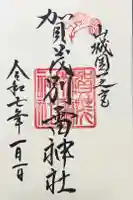 山城国一之宮
賀茂別雷神社
令和七年一月一日